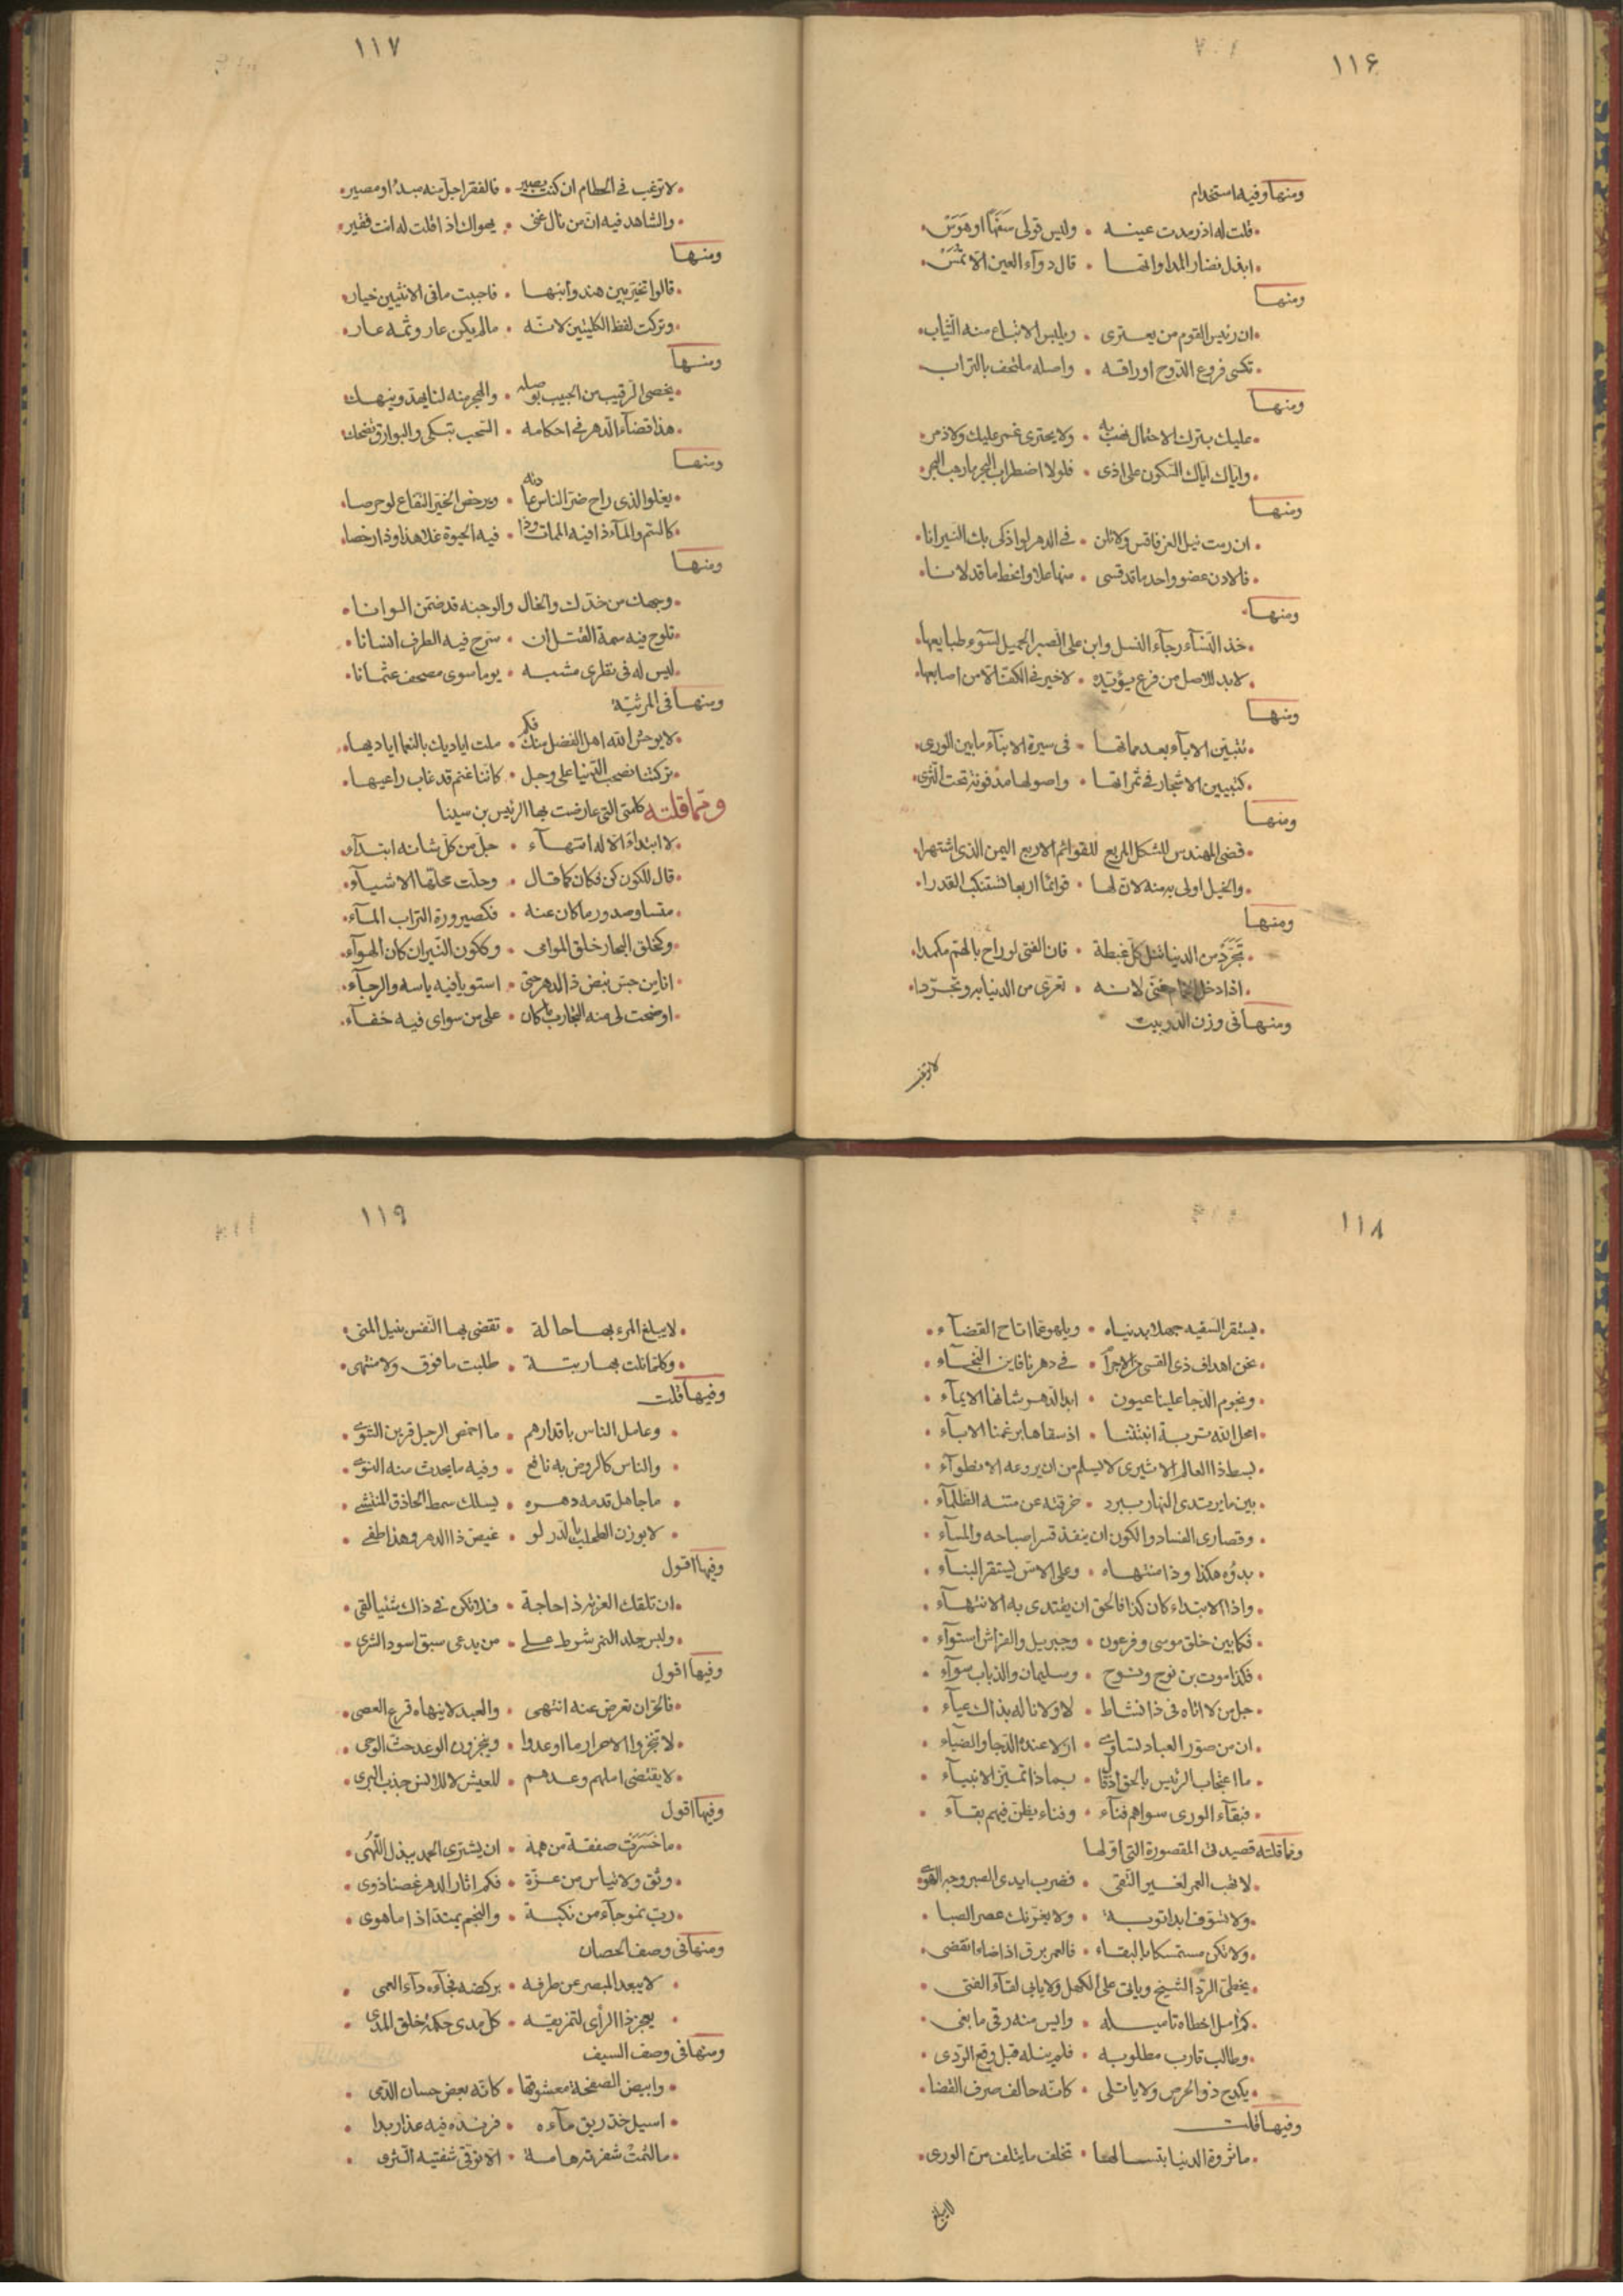 ١١٦
ومنها وفيه استخدام
قلت له اذ رمدت عينه • وليس قولى سفها او هوس
ابذل نضار المداواتها • قال دوآء العين الا تمس
ومنها
ان رئيس القوم من يعترى • ويلبس الاتباع منه الثياب
تكسى فروع الدوح اوراقه • واصله ملتحف بالتراب
ومنها
عليك بترك الاحتمال • ولا يحترى غمر عليك ولا ذمر
واياك اياك السكون على اذى • فلولا اضطراب البحر ما رهب البحر
ومنها
ان رمت نيل العز فاقس ولا تلن • فى الدهر لو اذكى بك النيرانا
فالاذن عضو واحد ما قد قسى • منها علا وانحط ما قد لانا
ومنها
خذ النسآء رجآء النسل وابن على الصبر الجميل لسوء طبايعها
لا بد للاصل من فرع يؤيده • لا خير فى الكف الا من اصابعها
ومنها
تتبين الابآء بعد مماتها • فى سيرة الابنآء ما بين الورى
كتبيين الاشجار فى ثمراتها • واصولها مدفونة تحت الثرى
ومنها
قضى المهندس للشكل المربع للقوائم الاربع اليمن الذى اشتهرا
والخيل اولى به منه لان لها • قوائما اربعا تستنكب القدرا
ومنها
تجرد من الدنيا تنل كل غبطة • فان الفتى لو راح بالهم مكمدا
اذا دخل الحمام غنى لانه • تعرى من الدنيا به وتجردا
ومنها فى وزن الدوبيت
لا ترغب
١١٧
لا ترغب فى الحطام ان كنت بصير • فالفقر اجل منه مبدءا ومصير
والشاهد فيه ان من نال غنى • يهواك اذا قلت له انت فقير
ومنها
قالوا تخير بين هند وابنها • فاجبت ما فى الانثيين خيار
وتركت لفظ الكليتين لانه • ما لم يكن عار وثمه عار
ومنها
يخصى الرقيب من الحبيب بوصله • والهجر منه لنا يهد وينهك
هذا قضآء الدهر فى احكامه • السحب تبكى والبوارق تضحك
ومنها
يغلو الذى راح ضر الناس • ويرخص الخير النفاع لو حرصا
كالسم والمآء ذا فيه الممات وذا • فيه الحيوة غلا هذا وذا رخصا
ومنها
وجهك من خدك والخال والوجنة قد ضمن الوانا
تلوح فيه سمة القتل ان • سرح فيه الطرف انسانا
ليس له فى نظرى مشبه • يوما سوى مصحف عثمانا
ومنها فى المرثية
لا يوحش الله اهل الفضل منك فكم • ملت اياديك بالنعما اياديها
تركتنا نصحب الدنيا على وجل • كاننا غنم قد غاب راعيها
ومما قلته كلمتى التى عارضت بها الرئيس بن سينا
لا ابتداء الا له انتهآء • جل من كل شانه ابتدآء
قال للكون كن فكان كما قال • وجلت محلها الاشيآء
متساو صدور ما كان عنه • فكصيرورة التراب المآء
وكخلق البحار خلق الموامى • وككون النيران كان الهوآء
انا من جس نبض ذا الدهر حتى • استويا فيه ياسه والرجآء
اوضحت لى منه التجارب ما كان • على من سواى فيه خفآء
١١٨
يستقر السفيه جهلا بدنياه • ويلهو عما اتاح القضآء
نحن اهداف ذى القسى • فى دهرنا فاين النجآء
ونجوم الدجا علينا عيون • ابد الدهر شانها الايمآء
امحل الله تربة انبتتنا • اذ سقاها برغمنا الابآء
بسط ذا العالم الاثيرى لا يسلم من ان يروعه الانطوآء
بين ما يرتدى النهار ببرد • خرقته عن متنه الظلمآء
وقصارى الفساد والكون ان ينفذ قسرا صباحه والمسآء
بدؤه هكذا وذا منتهاه • وعلى الاس يستقر البنآء
واذا الابتداء كان كذا فالحق ان يقتدى به الانتهآء
فكما بين خلق موسى وفرعون • وجبريل والفراش استوآء
فكذا موت بن نوح ونوح • وسليمان والذباب سوآء
جل من لا اتاه فى ذا نشاط • لا ولا ناله بذاك عيآء
ان من صور العباد تساوى • ازلا عنده الدجا والضيآء
ما اعتجاب الرئيس بالحق • بماذا تميز الانبيآء
فبقآء الورى سواهم فنآء • وفناء يظن فيهم بقآء
ومما قلته قصيدتى المقصورة التى اولها
لا تهب العمر لغير التقى • فضرب ايدى الصبر وجه الهوى
ولا تسوف ابدا توبة • ولا يغرنك عصر الصبا
ولا تكن مستمسكا بالبقاء • فالعمر برق اذ اضاء انقضى
يخطى الردى الشيخ وياتى على الكهل ولا يابى لقآء الفتى
كم امل اخطاه تاميله • وايس منه رقى ما بغى
وطالب قارب مطلوبه • فلم ينله قبل وقع الردى
يكدح ذو الحرص ولا ياتلى • كانه حالف صرف القضا
وفيها قلت
ما ثروة الدنيا بتسالها • تخلف ما يتلف من الورى
لا يبلغ
١١٩
لا يبلغ المرء بها حالة • تقضى بها النفس بنيل المنى
وكلما نلت بها رتبة • طلبت ما فوق ولا منتهى
وفيها قلت
وعامل الناس باقدارهم • ما اخمص الرجل قرين الشوى
والناس كالروض به نافع • وفيه ما يحدث منه التوى
ما جاهل قدمه دهره • يسلك سمط الحاذق المنتشى
لا يوزن الطحلب بالدر لو • غيض ذا الدهر وهذا طفى
وفيها اقول
ان تلقك العز به ذا حاجة • فلا تكن فى ذاك شيئا لقى
وليس جلد النمر شرط على • من يدعى سبق اسود الشرى
وفيها اقول
فالحر ان تعرض عنه انتهى • والعبد لا ينهاه قرع العصى
لا تنجزوا الاحرار ما اوعدوا • وينجزون الوعد حث الوحى
لا يقتضى املهم وعدهم • للعيش لا للانس جذب البرى
وفيها اقول
ما خسرت صفقة من همه • ان يشترى الحمد ببذل اللهى
وثق ولا تياس من عزة • فكم اثار الدهر غصنا ذوى
رب نمو جآء من نكبة • والنجم يمتد اذا ما هوى
ومنها فى وصف الحصان
لا يبعد المبصر عن طرفه • بركضه فجآءه دآء العمى
يعجز ذا الرأى لتمزيقه • كل مدى حكمة خلق المدى
ومنها فى وصف السيف
وابيض الصفحة معشوقها • كانه بعض حسان الدمى
اسيل خد ريق مآءه • فرنده فيه عذار بدا
ما لثمت شفرته هامة • الا توقى شفتيه الثرى